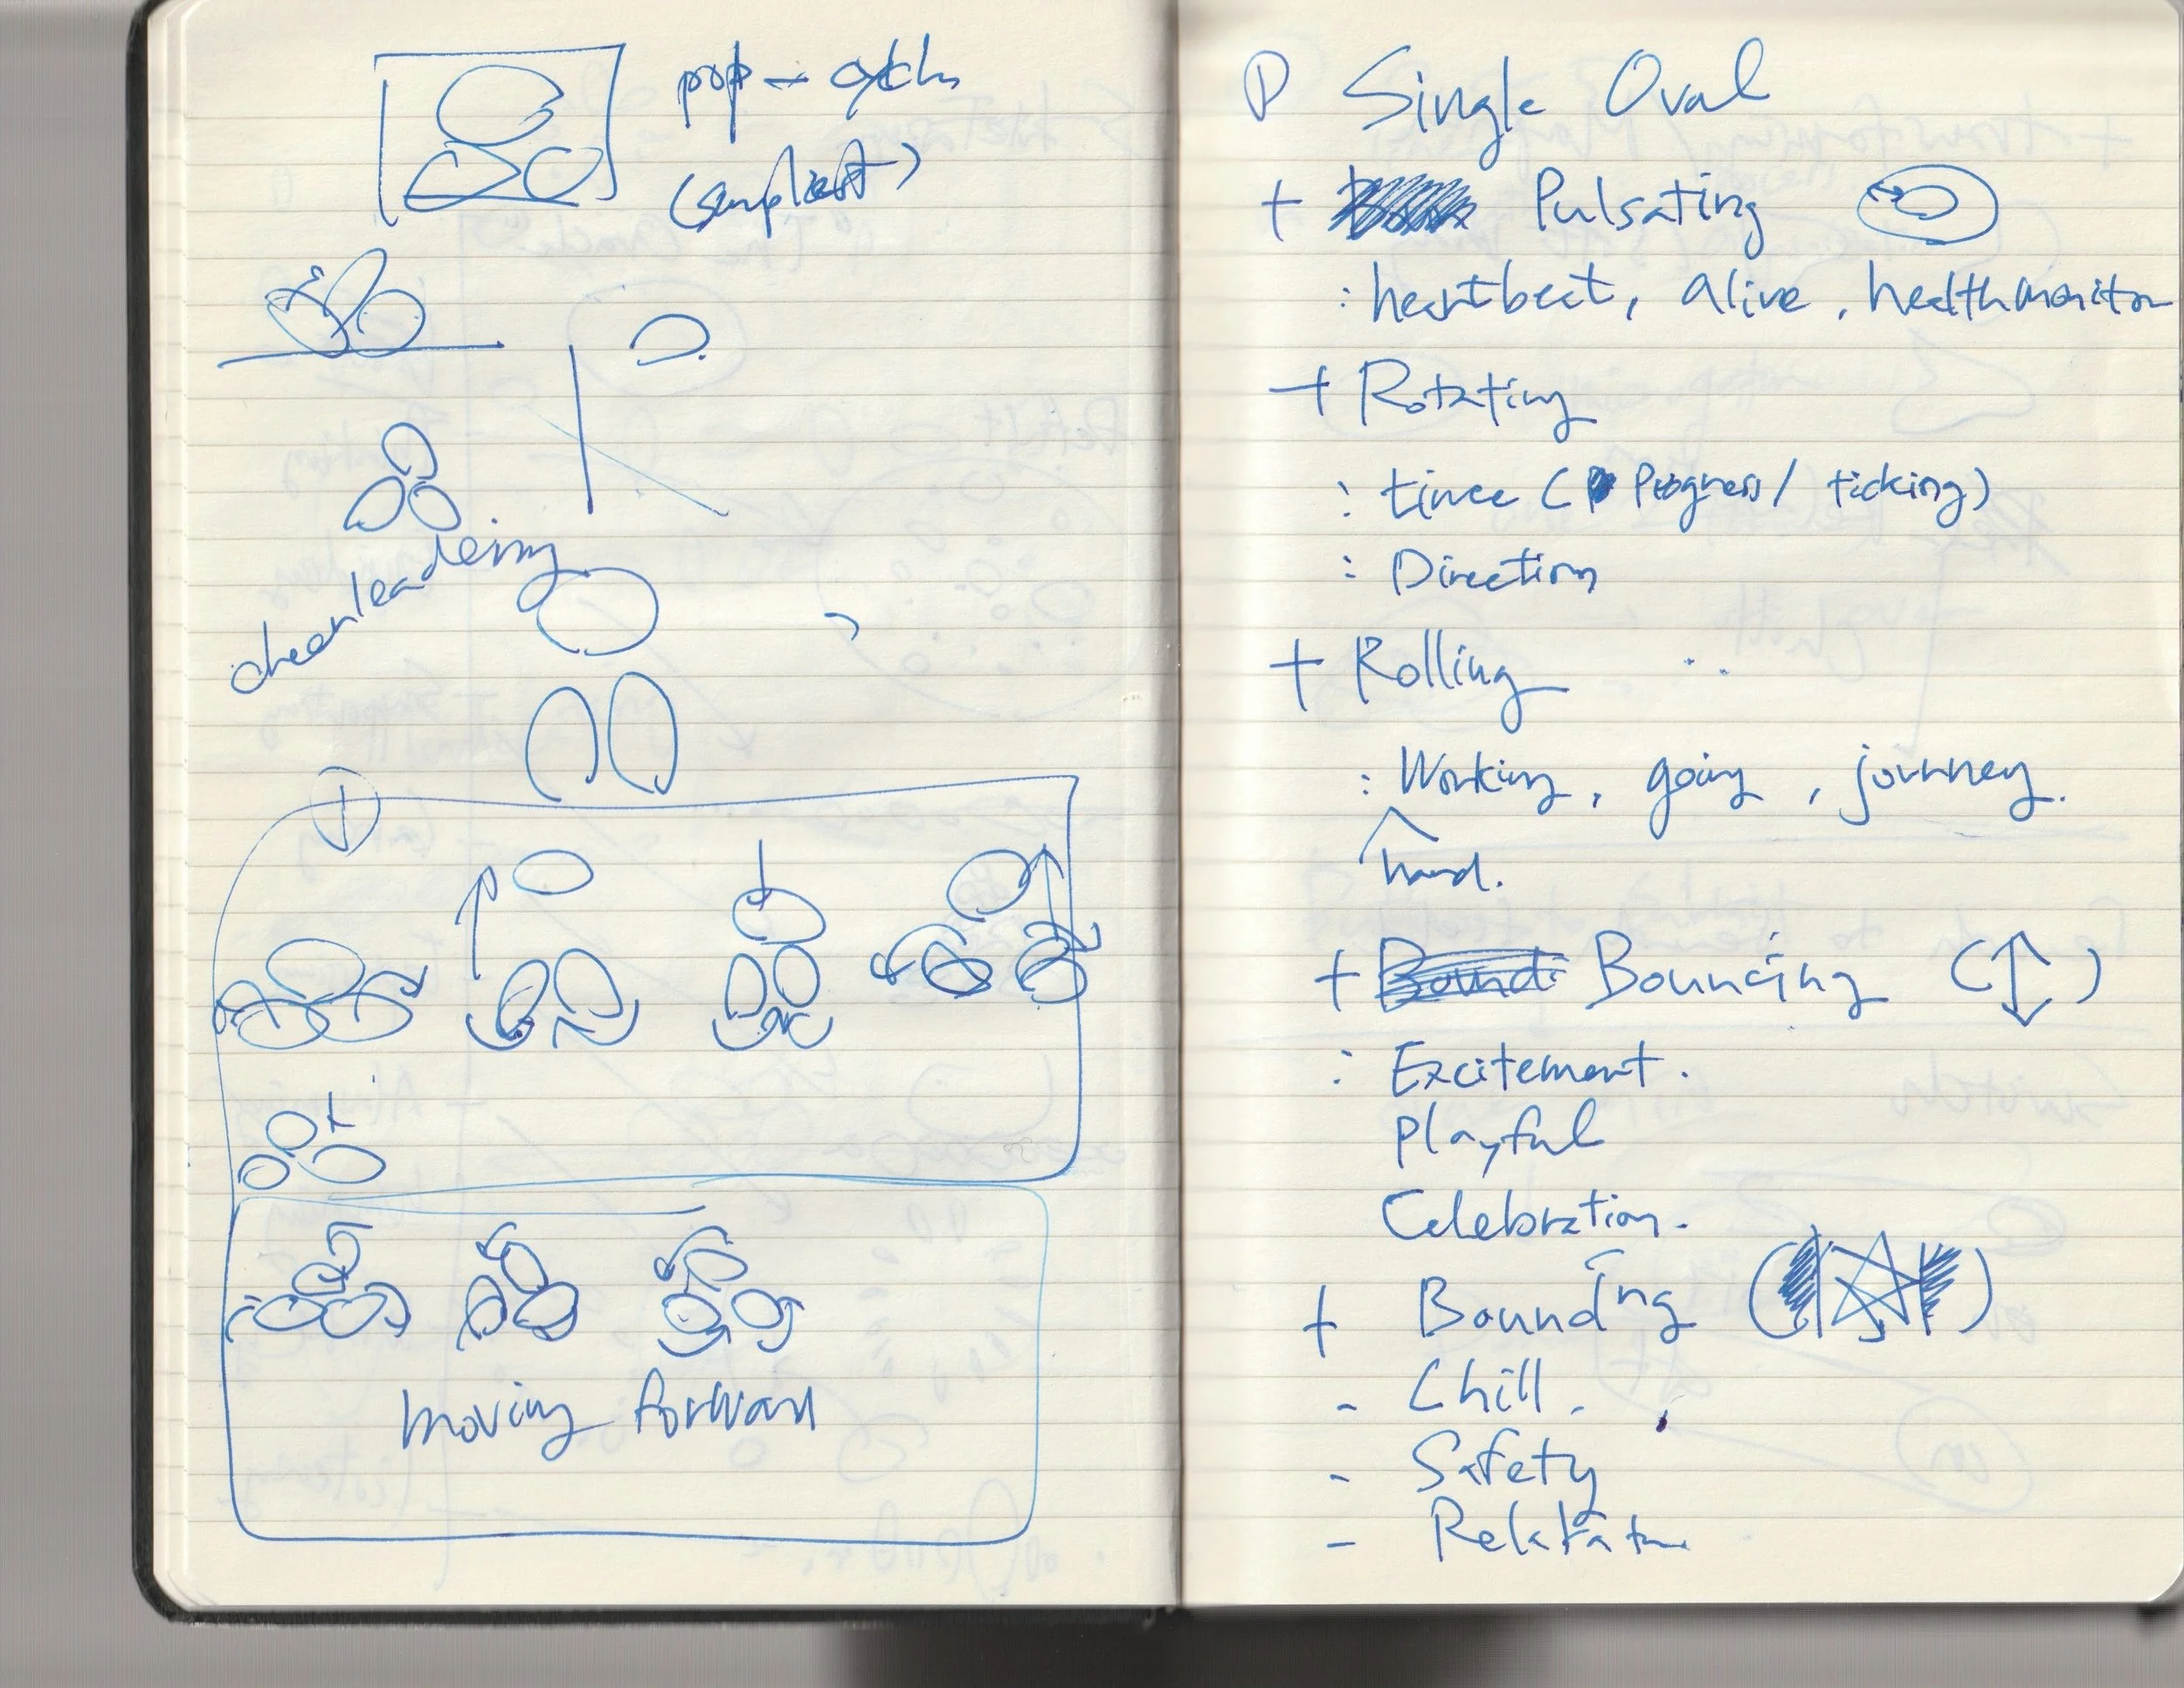 pop-
(simplest)
cheerleading
moving forward
① Single Oval
+ Pulsating
: heartbeat, alive, health monitor
+ Rotating
: time (Progress / ticking)
: Direction
+ Rolling
: Working, going, journey.
hard.
+ Bound Bouncing (↕)
: Excitement.
Playful
Celebration.
+ Bounding
- Chill.
- Safety
-